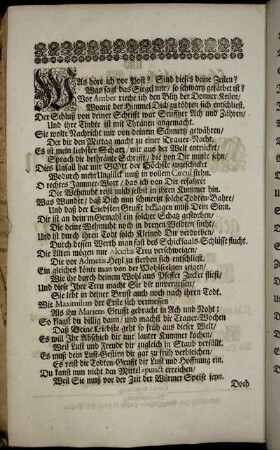 WAs höre ich vor Post? Sind dieses deine Zeilen?
Was sagt das Siegel mir/ so schwartz gefärbet ist?
Vor Amber rieche ich den Blitz der Donner-Keilen/
Womit der Himmel Dich zu tödten sich entschließt.
Der Schluß von deiner Schrifft war Seufftzer Ach und Zähren/
Und ihre Tindte ist mit Thränen angemacht.
Sie wolte Nachricht mir von deinem Schmertz gewähren/
Der dir den Mittag macht zu einer Trauer-Nacht.
Es ist mein liebster Schatz/ mir aus der Welt entrücket/
Sprach die bethränte Schrifft/ die von Dir muste seyn/
Dies Unfall hat mir der Höchste zugeschicket
Wodurch mein Unglück muß in vollem Circul stehn.
O rechtes Jammer-Wort/ das ich von Dir erfahre
Die Wehmuht reist mich selbst in ihren Kummer hin.
Was Wunder/ daß Dich nun schmertzt solche Todten-Bahre/
Und daß der Liebsten Grufft beklagen muß Dein Sinn.
Dir ist an dein Gemahl ein solcher Schatz gestorben/
Die deine Wehmuht noch in dreyen Weißten sieht;
Und ist durch ihren Todt solch Kleinod Dir verdorben/
Durch dessen Werth man fast des Schicksaals-Schlüsse flucht.
Die Lilien mögen nur Alcestin Treu verschweigen/
Die vor Admetus Heyl zu sterben sich entschließt.
Ein gleiches könte man von der Wohlseelgen zeigen/
Wie ihr durch deinem Wohl aus Pfeffer Zucker fliest/
Und diese Ihre Treu macht Sie dir unvergessen/
Sie lebt in deiner Brust auch noch nach ihrem Todt.
Wie Maximilian der Erste sich vermessen
Als ihn Marien Grufft gebracht in Ach und Noht:
So klagst du billig dann/ und machst dir Trauer-Wochen
Daß Deine Liebste geht so früh aus dieser Welt/
Es will Ihr Abschied dir nur lauter Kummer kochen/
Weil Lust und Freude dir zugleich in Staub verfällt.
Es muß dein Lust-Gestirn dir gar zu früh verbleichen/
Es reist die Todten-Grufft dir Lust und Hoffnung ein.
Du kanst nun nicht den Mittel-punct erreichen/
Weil Sie muß vor der Zeit der Würmer Speise seyn.
Doch